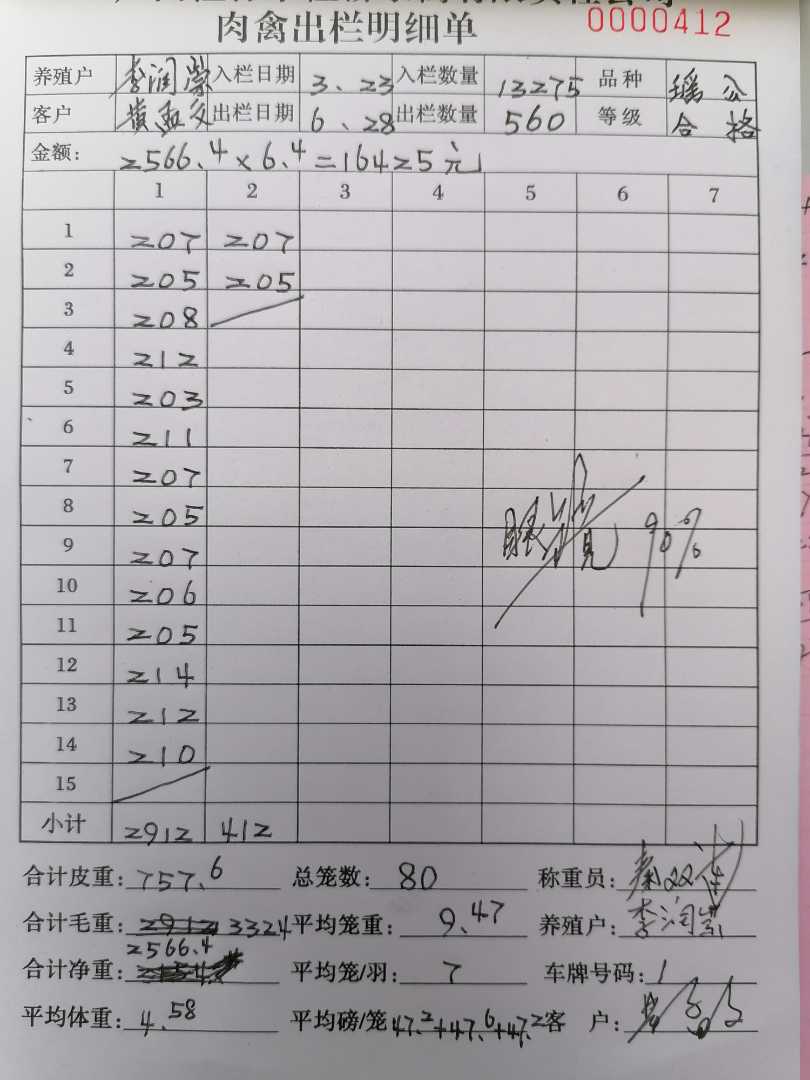 肉禽出栏明细单 0000412
养殖户 李润 入栏日期 3.23 入栏数量 13275 品种 瑶公
客户 出栏日期 6.28 出栏数量 560 等级 合格
金额: 2566.4×6.4=16425元
1 2 3 4 5 6 7
1 207 207
2 205 205
3 208
4 212
5 203
6 211
7 207
8 205
9 207
10 206
11 205
12 214
13 212
14 210
15
90%
小计 2912 412
合计皮重: 757.6 总笼数: 80 称重员:
合计毛重: 2912 3324 平均笼重: 9.47 养殖户: 李润
合计净重: 2566.4 平均笼/羽: 7 车牌号码: /
平均体重: 4.58 平均磅/笼 47.2+47.6+47.2 客 户: